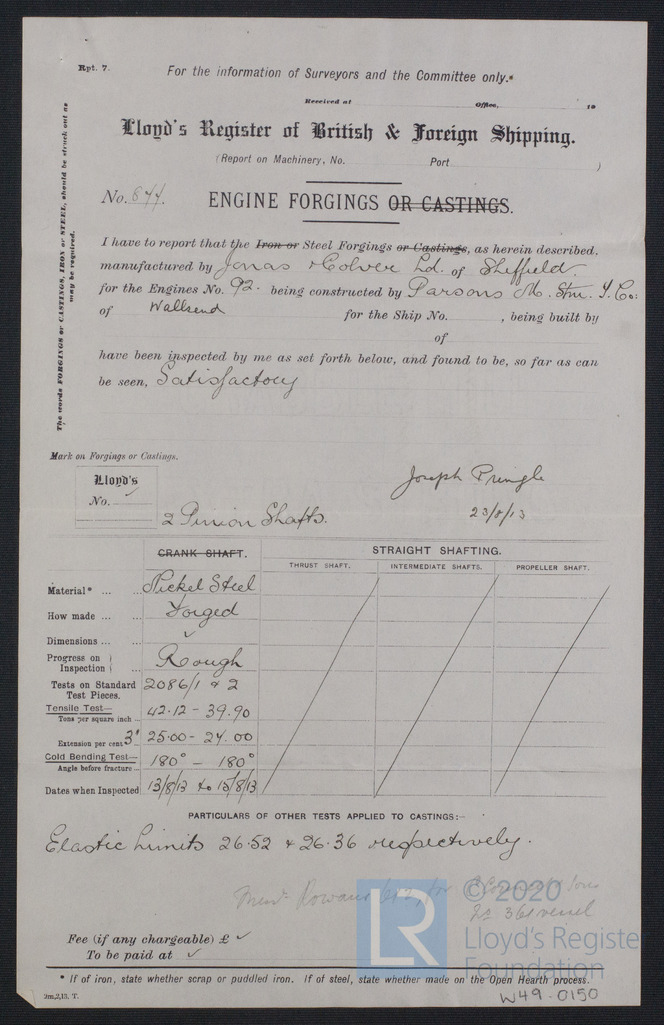 Rpt. 7.
For the information of Surveyors and the Committee only.*
Received at Office, 19
Lloyd's Register of British & Foreign Shipping.
(Report on Machinery, No. Port )
No. 844. ENGINE FORGINGS OR CASTINGS.
The words FORGINGS or CASTINGS, IRON or STEEL, should be struck out as may be required.
I have to report that the Iron or Steel Forgings or Castings, as herein described,
manufactured by Jonas & Colver Ld. of Sheffield
for the Engines No. 92. being constructed by Parsons M. Stm. T. Co:
of Wallsend for the Ship No. , being built by
of
have been inspected by me as set forth below, and found to be, so far as can
be seen, Satisfactory
Mark on Forgings or Castings.
Lloyd's
No.
Joseph Pringle
23/8/13
2 Pinion Shafts.
CRANK SHAFT. STRAIGHT SHAFTING.
THRUST SHAFT. INTERMEDIATE SHAFTS. PROPELLER SHAFT.
Material* ... ... Nickel Steel
How made ... ... Forged
Dimensions ... ...
Progress on Inspection Rough
Tests on Standard Test Pieces. 2086/1 & 2
Tensile Test— Tons per square inch ... 42.12 - 39.90
Extension per cent 3" 25.00 - 24.00
Cold Bending Test— Angle before fracture... 180° - 180°
Dates when Inspected 13/8/13 to 15/8/13
PARTICULARS OF OTHER TESTS APPLIED TO CASTINGS:—
Elastic Limits 26.52 & 26.36 respectively.
Rowans
© 2020
361 vessel
LR
Lloyd's Registe
Foundation
Fee (if any chargeable) £
To be paid at
* If of iron, state whether scrap or puddled iron. If of steel, state whether made on the Open Hearth process.
2m,2,13. T.
W49-0150